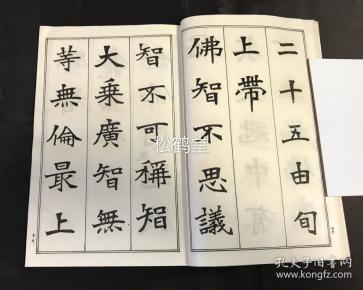 二十五由旬
上帶
佛智不思議
智不可稱智
大乘廣智無
等無倫最上
松鹤堂
孔夫子旧书网